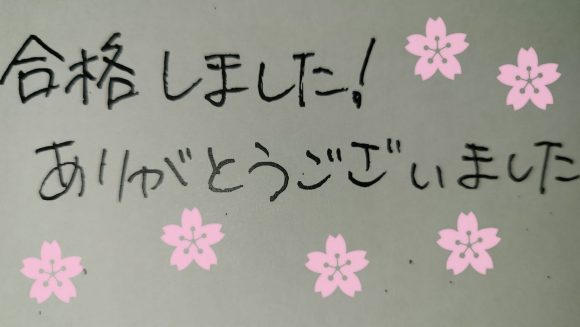 合格しました!
ありがとうございました